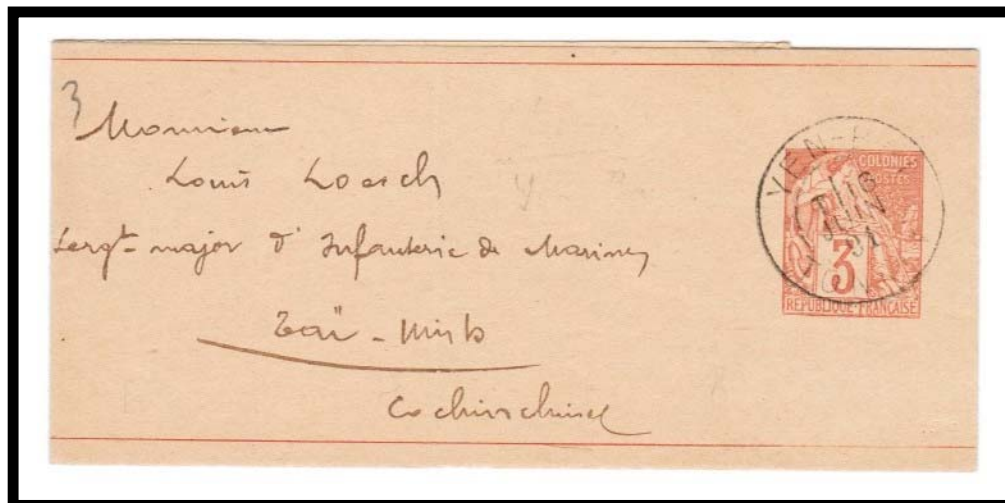 3
Monsieur
Louis Loesch
Sergt-major d'Infanterie de Marine
Taï-Ninh
Cochinchine
YEN-
1
16
JUIN
91
COLONIES
POSTES
3
REPUBLIQUE FRANCAISE